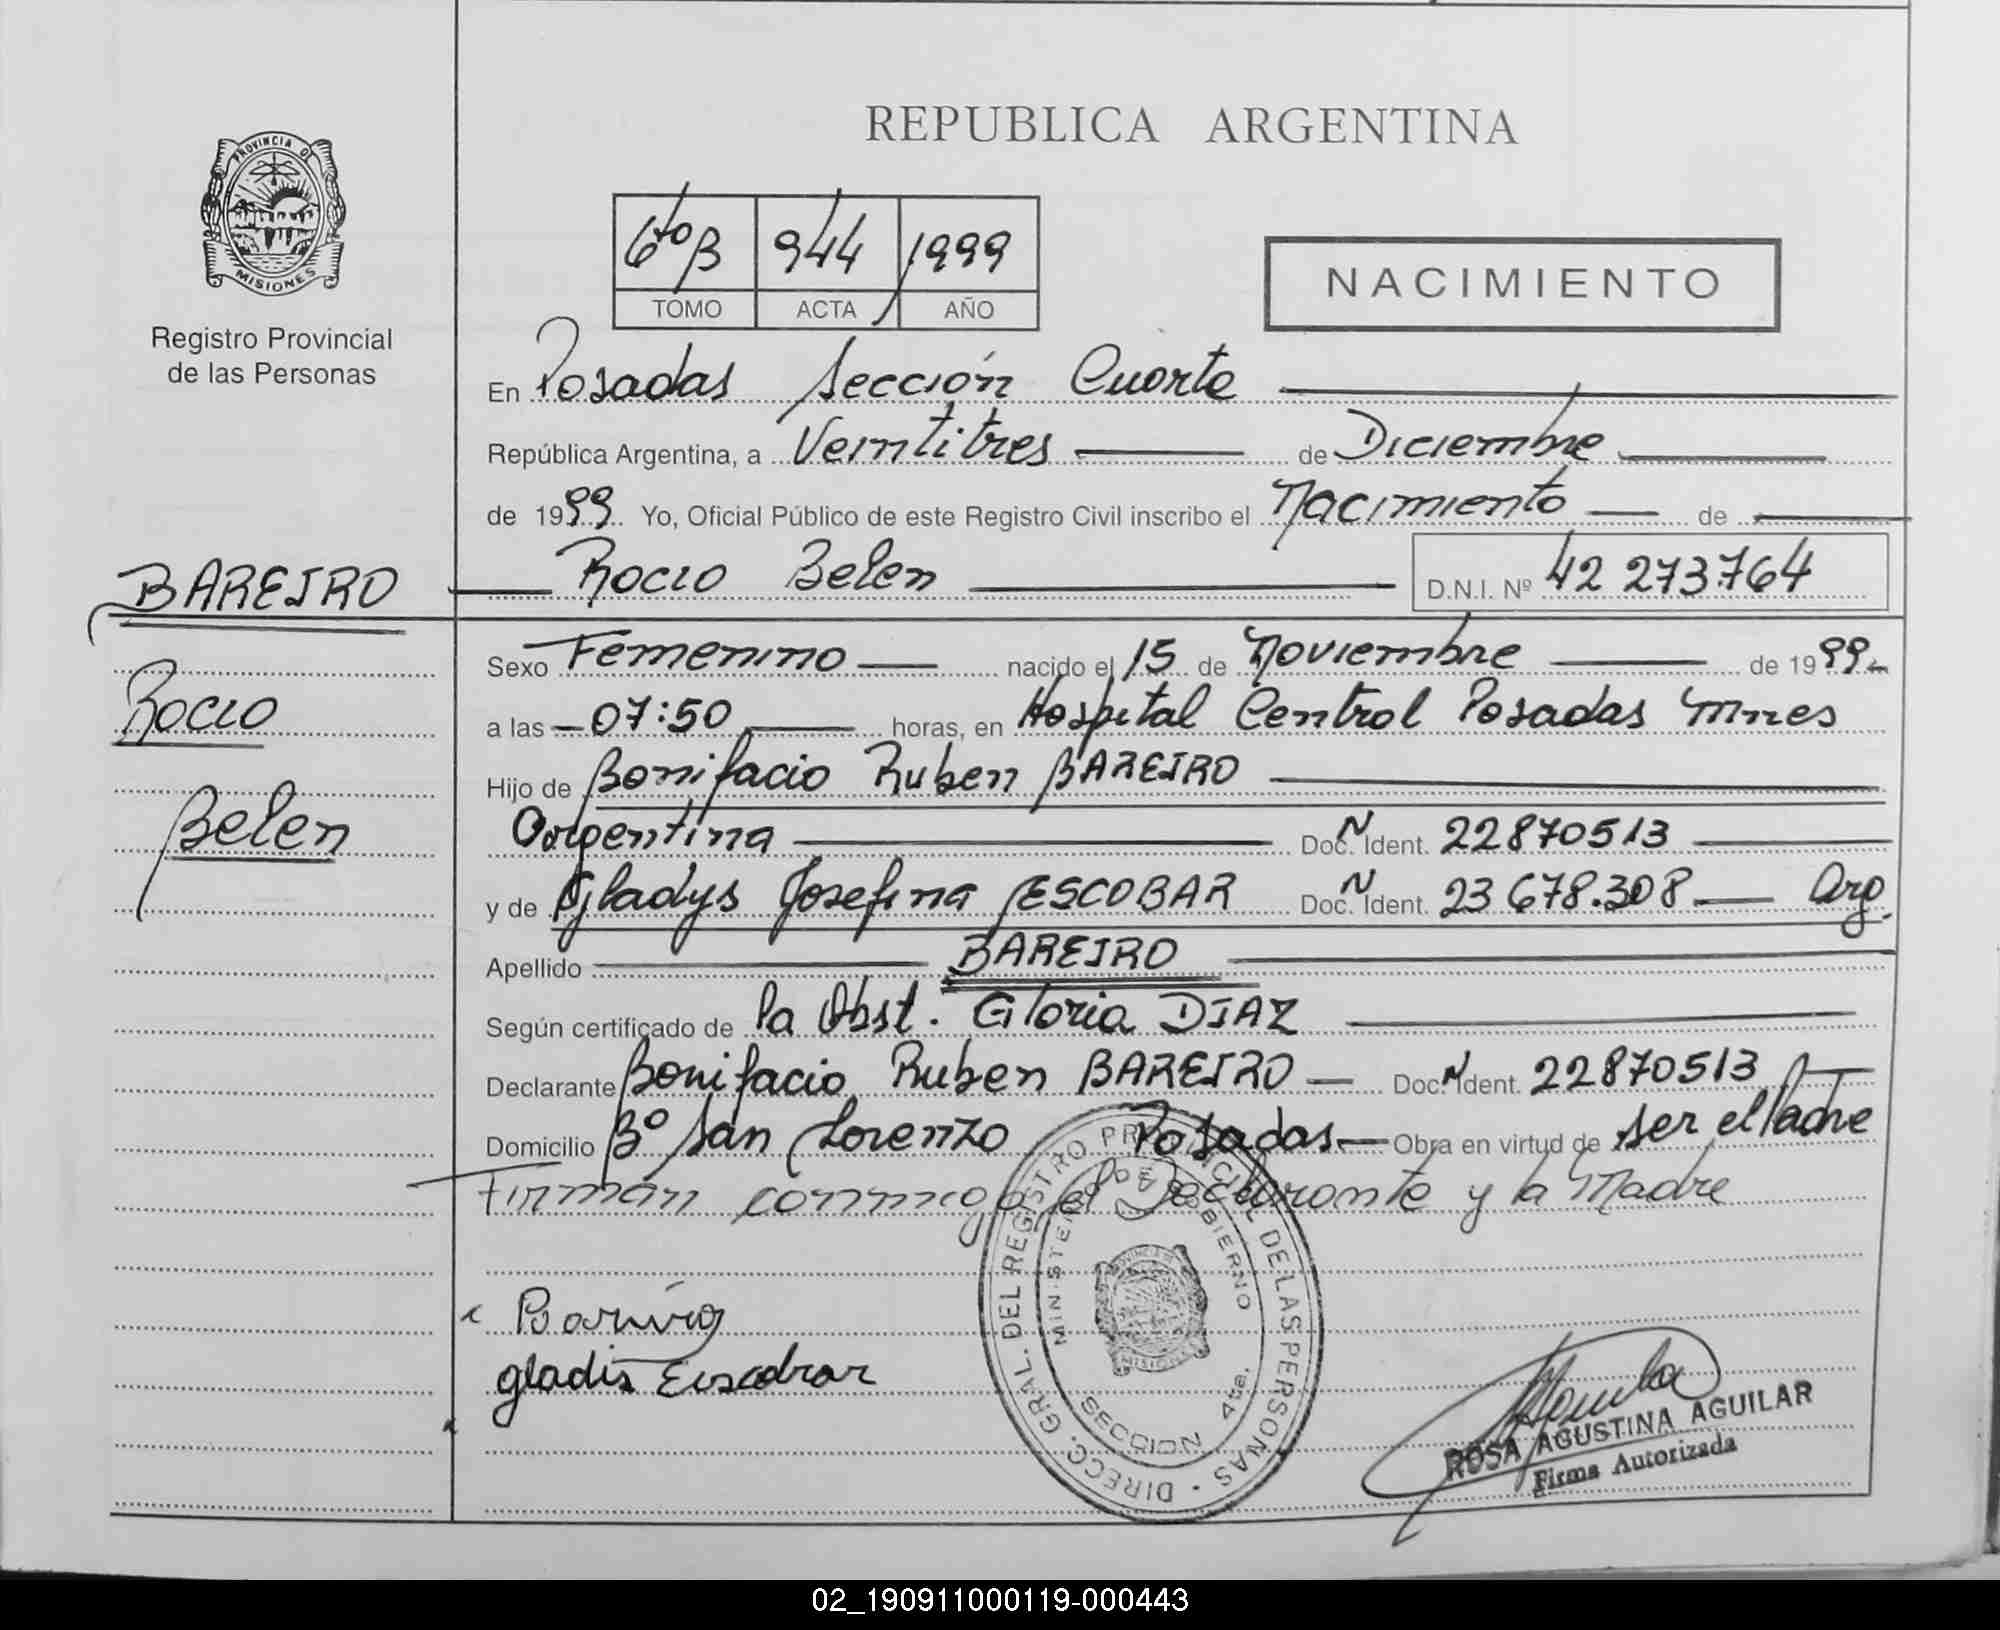 REPUBLICA ARGENTINA
PROVINCIA DE
MISIONES
Registro Provincial
de las Personas
6to B 944 1999
TOMO ACTA AÑO
NACIMIENTO
En Posadas Sección Cuarta
República Argentina, a Veintitres de Diciembre
de 1999 Yo, Oficial Público de este Registro Civil inscribo el Nacimiento de
BAREIRO
Rocio
Belen
Rocio Belen D.N.I. Nº 42 273764
Sexo Femenino nacido el 15 de Noviembre de 1999
a las 07:50 horas, en Hospital Central Posadas Mnes
Hijo de Bonifacio Ruben BAREIRO
Argentina Doc. N Ident. 22870513
y de Gladys Josefina ESCOBAR Doc. N Ident. 23 678.308 Arg.
Apellido BAREIRO
Según certificado de la Obst. Gloria DIAZ
Declarante Bonifacio Ruben BAREIRO Doc. N Ident. 22870513
Domicilio Bº San Lorenzo Posadas Obra en virtud de ser el Padre
Firman conmigo el Declarante y la Madre
gladis Escobar
DIRECC. GRAL. DEL REGISTRO PROVINCIAL DE LAS PERSONAS
MINISTERIO DE GOBIERNO
SECCION 4ta.
MISIONES
ROSA AGUSTINA AGUILAR
Firma Autorizada
02_190911000119-000443